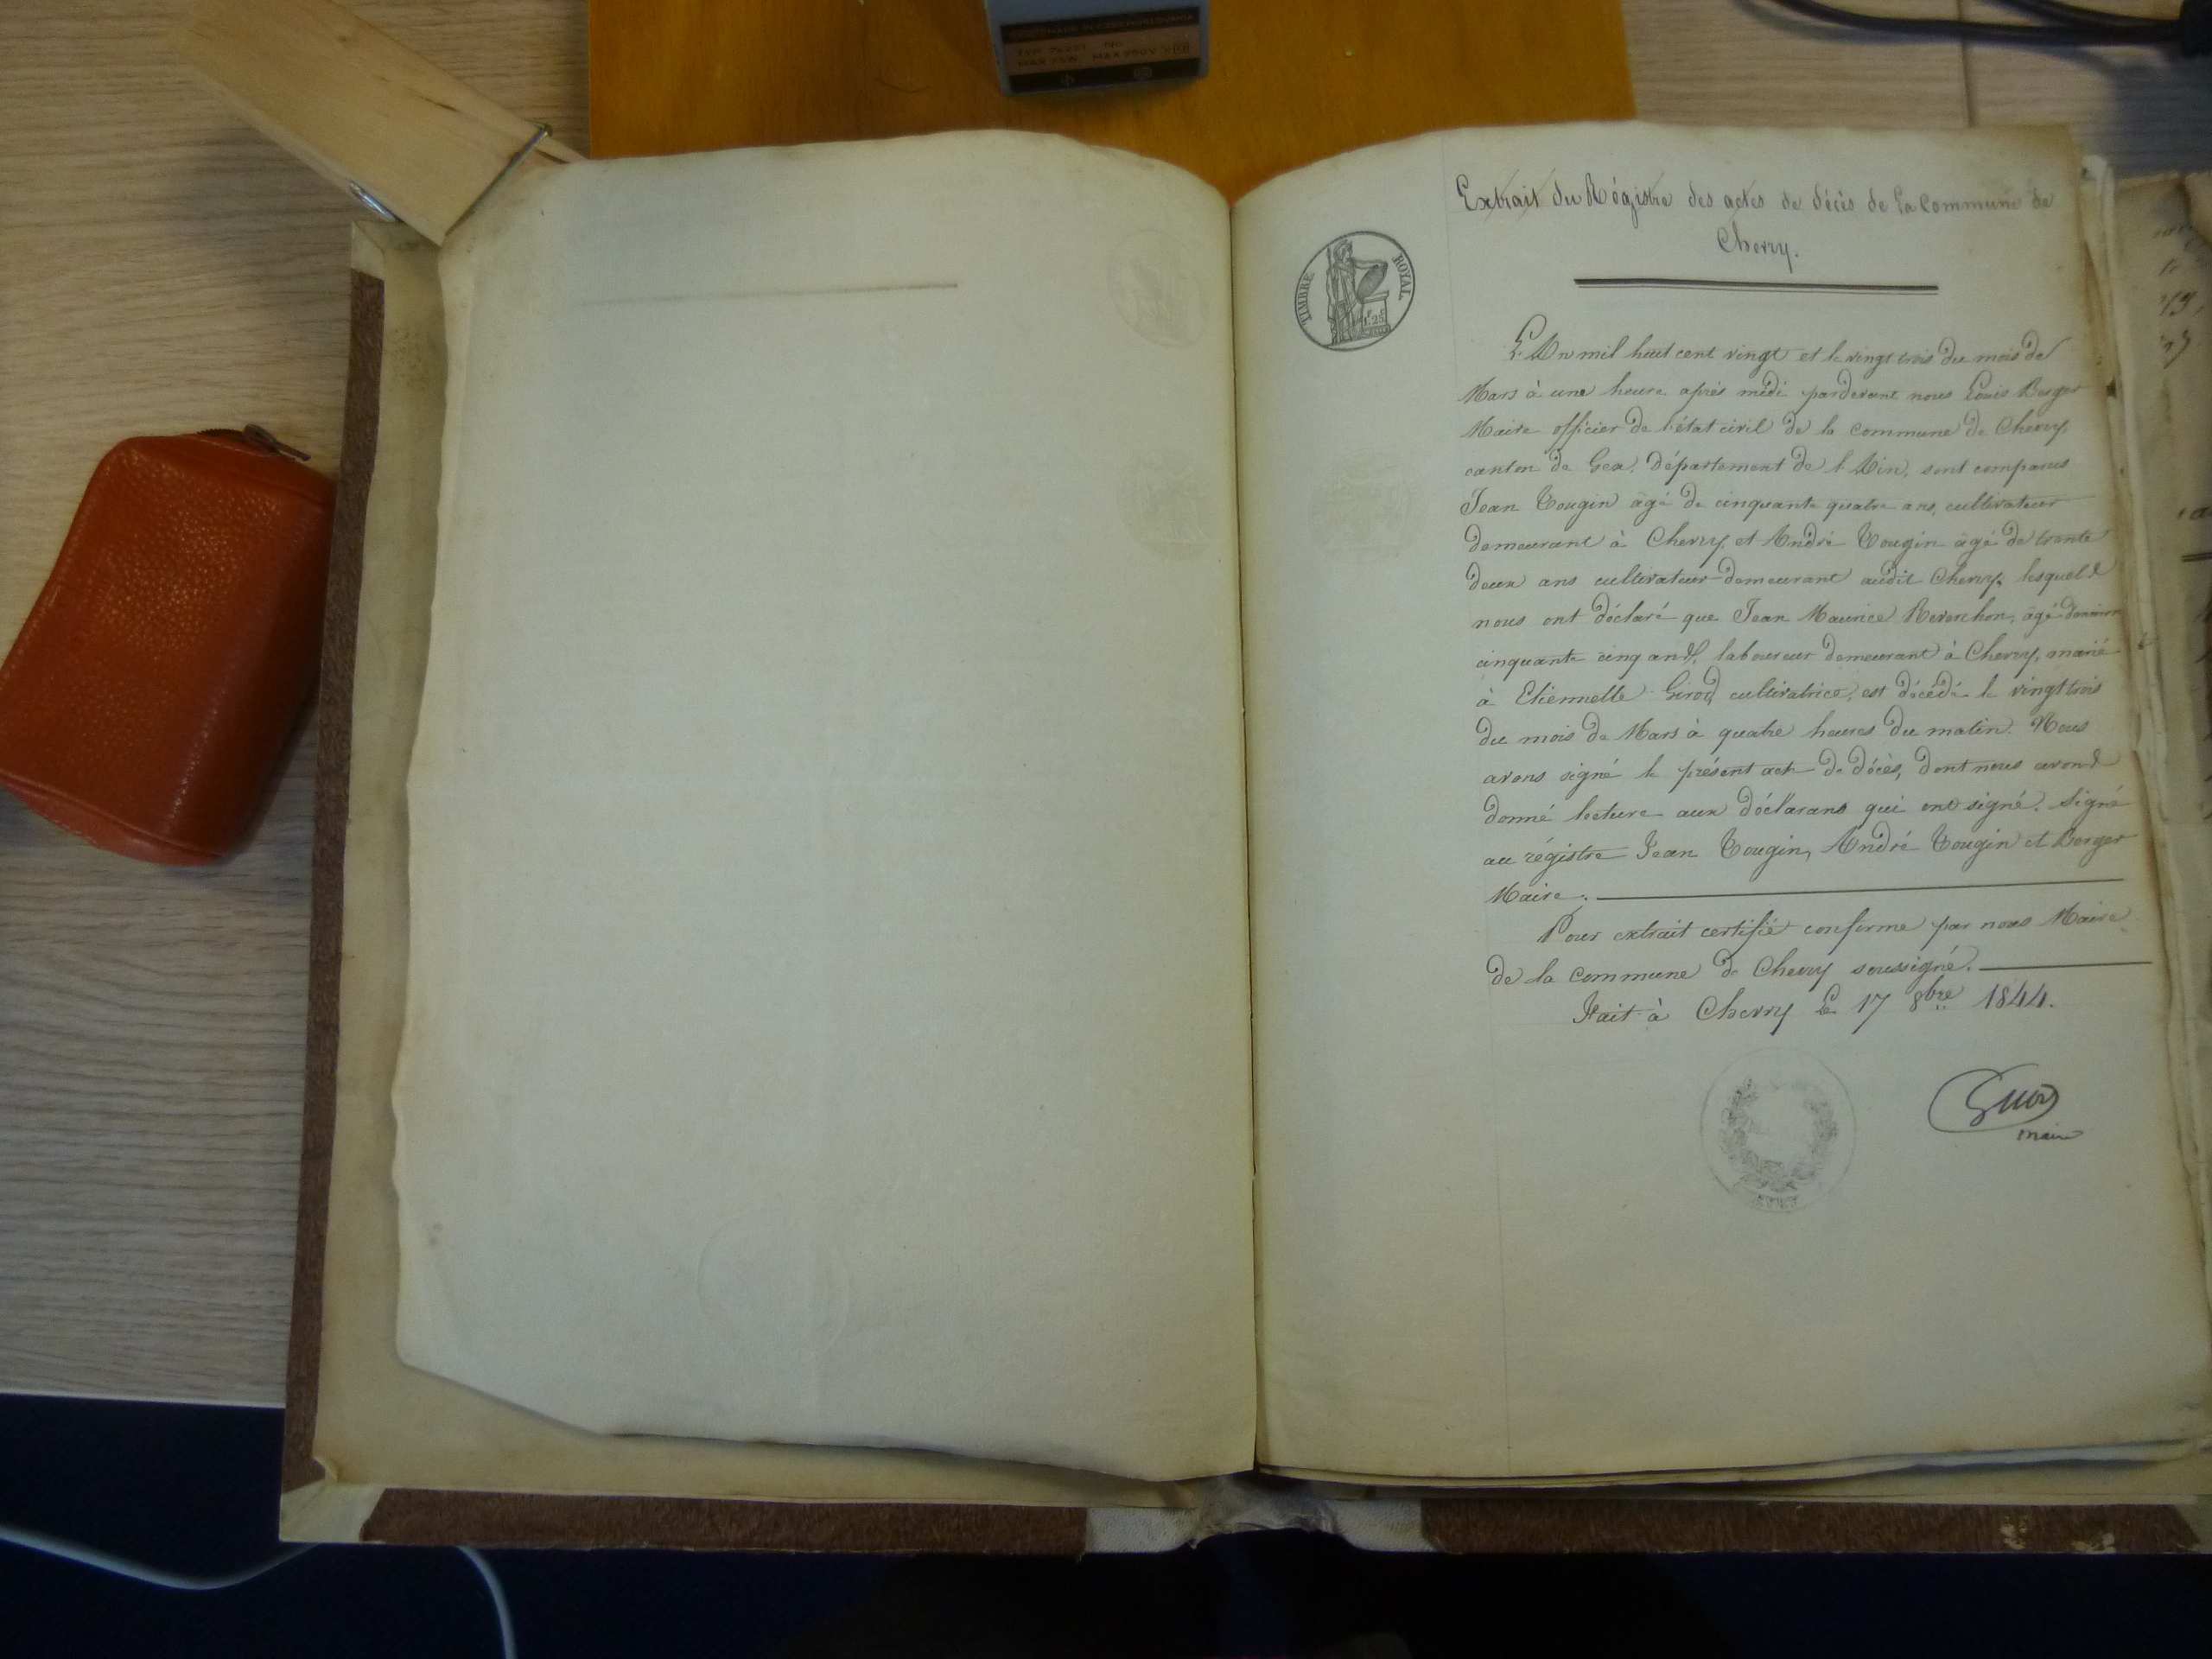 Extrait du Régistre des actes de décès de la Commune de
Chevry.
TIMBRE ROYAL
1F 25C
L'An mil huit cent vingt et le vingt trois du mois de
Mars à une heure après midi pardevant nous Louis Berger
Maire officier de l'état civil de la commune de Chevry,
canton de Gex, Département de l'Ain, sont comparus
Jean Tougin âgé de cinquante quatre ans, cultivateur
demeurant à Chevry, et André Tougin âgé de trente
deux ans cultivateur demeurant audit Chevry, lesquels
nous ont déclaré que Jean Maurice Reverchon, âgé d'environ
cinquante cinq ans, laboureur demeurant à Chevry, marié
à Etiennette Girod cultivatrice, est décédé le vingt trois
du mois de Mars à quatre heures du matin. Nous
avons signé le présent acte de décès, dont nous avons
donné lecture aux déclarans qui ont signé. Signé
au régistre Jean Tougin, André Tougin et Berger
Maire.
Pour extrait certifié conforme par nous Maire
de la commune de Chevry soussigné.
Fait à Chevry le 17 8bre 1844.
maire